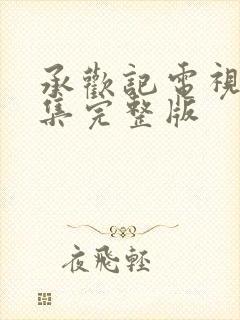 承歡記電視
集完整版
夜飛輕